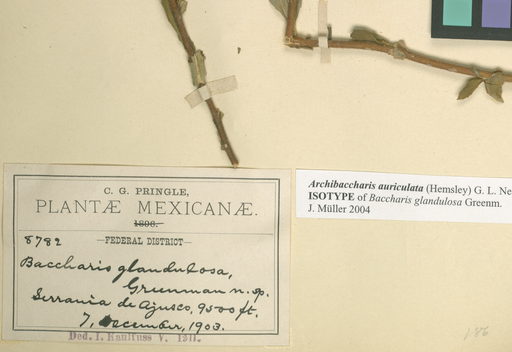 C. G. PRINGLE,
PLANTÆ MEXICANÆ.
1896.
8782 —FEDERAL DISTRICT—
Baccharis glandulosa,
Greenman n. sp.
Serrania de Ajusco, 9500 ft.
7, December, 1903.
Ded. I. V.
Archibaccharis auriculata (Hemsley) G. L. Ne
ISOTYPE of Baccharis glandulosa Greenm.
J. Müller 2004
186